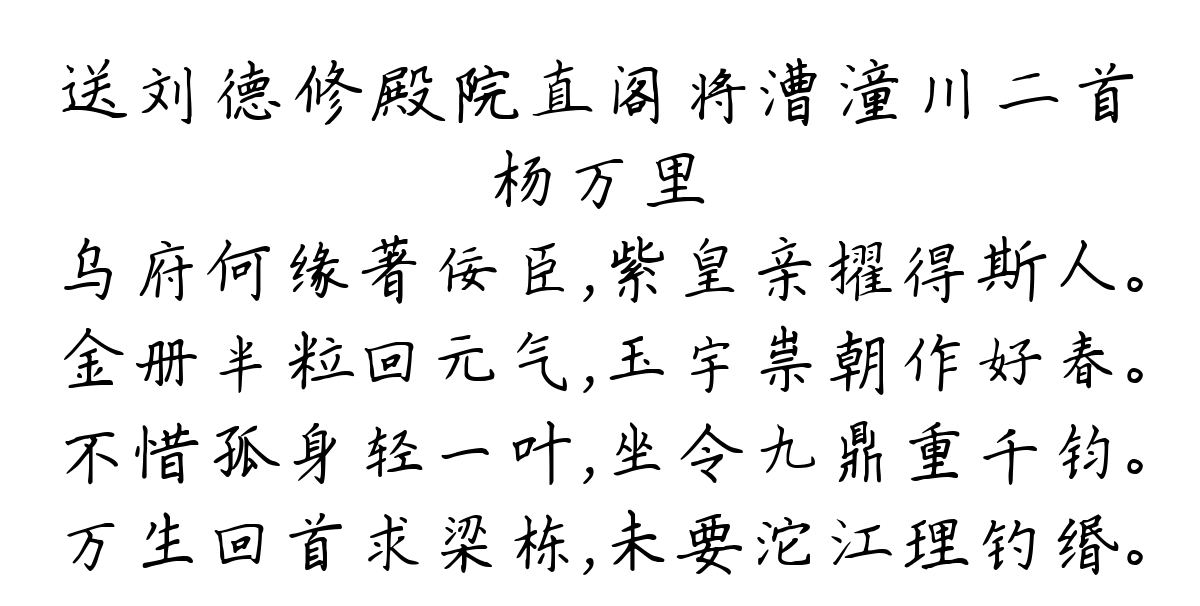 送刘德修殿院直阁将漕潼川二首
杨万里
乌府何缘著佞臣,紫皇亲擢得斯人。
金册半粒回元气,玉宇崇朝作好春。
不惜孤身轻一叶,坐令九鼎重千钧。
万生回首求梁栋,未要沱江理钓缗。